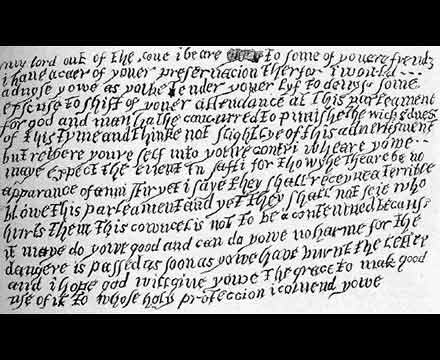 my lord out of the love i beare to some of youere frends
i have a caer of youer preservacion therfor i would
advyse yowe as yowe tender youer lyf to devys some
excuse to shift of youer attendance at this parleament
for god and man hathe concurred to punishe the wickednes
of this tyme and thinke not slightlye of this advertisment
but retiere youre self into youre contri wheare yowe
maye expect the event in safti for thowghe theare be no
apparance of anni stir yet i saye they shall receyve a terrible
blowe this parleament and yet they shall not seie who
hurts them this cowncel is not to be contemned because
it maye do yowe good and can do yowe no harme for the
dangere is passed as soon as yowe have burnt the letter
and i hope god will give yowe the grace to mak good
use of it to whose holy protection i comend yowe